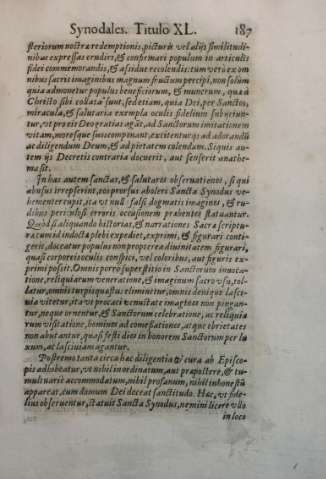 Synodales. Titulo XL. 187
steriorum nostræ redemptionis, picturis vel alijs similitudi-
nibus expressas erudiri, & confirmari populum in articulis
fidei commemorandis, & assidue recolendis: tum verò ex om
nibus sacris imaginibus magnum fructum percipi, non solum
quia admonetur populus beneficiorum, & munerum, quæ à
Christo sibi collata sunt, sed etiam, quia Dei, per Sanctos,
miracula, & salutaria exempla oculis fidelium subijciun-
tur, vt pro eis Deo gratias agāt, ad Sanctorum imitationem
vitam, moresque suos componant, excitenturq; ad adorandū
ac diligendum Deum, & ad pietatem colendam. Siquis au-
tem ijs Decretis contraria docuerit, aut senserit anathe-
ma sit.
In has autem sanctas, & salutares obseruationes, si qui
abusus irrepserint, eos prorsus aboleri Sancta Synodus ve-
hementer cupit, ita vt nullæ falsi dogmatis imagines, & ru-
dibus periculosi erroris occasionem præbentes statuantur.
Quòd si aliquando historias, & narrationes Sacræ scriptu-
ræ, cum id indoctæ plebi expediet, exprimi, & figurari conti-
gerit, doceatur populus non propterea diuinitatem figurari,
quasi corporeis oculis conspici, vel coloribus, aut figuris ex
primi possit. Omnis porrò superstitio in Sanctorum inuoca-
tione, reliquiarum veneratione, & imaginum sacro vsu, tol-
latur, omnis turpis quæstus eliminetur, omnis deniq; lasci-
uia vitetur, ita vt procaci venustate imagines non pingan-
tur, neque ornentur, & Sanctorum celebratione, ac reliquia
rum visitatione, homines ad comessationes, atque ebrietates
non abutantur, quasi festi dies in honorem Sanctorum per lu
xum, ac lasciuiam agantur.
Postremo tanta circa hæc diligentia & cura ab Episco-
pis adhibeatur, vt nihil inordinatum, aut præposterè, & tu-
multuariè accommodatum, nihil profanum, nihil inhonestū
appareat, cum domum Dei deceat sanctitudo. Hæc, vt fide-
lius obseruentur, statuit Sancta Synodus, nemini licere vllo
in loco